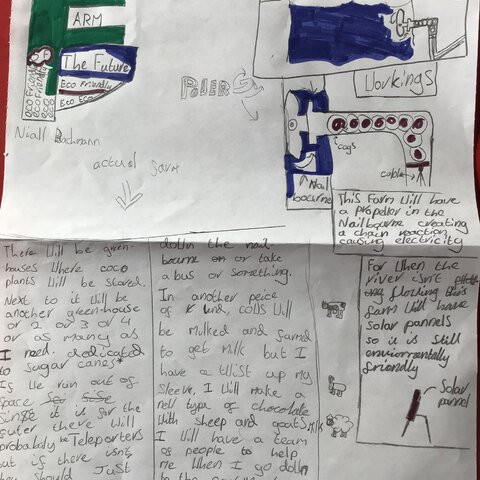 ARM
The Future
Eco Friendly
Eco Eco
Eco Friendly
Eco Friendly
Niall Bachmann
actual farm
POWER
Workings
cogs
cable
Nail
bourne
This Farm Will have
a propeler in the
Nailbourne creating
a chain reaction
causing electricity
There Will be green-
houses Where coco
plants Will be stored.
Next to it Will be
another green-house
or 2 or 3 or 4
or as many as
I need. dedicated
to sugar canes*
If We run out of
space
Sinse it is for the
futer there Will
probably be Teleporters
but if there isn't
they should Just
down the nail-
bourne or take
a bus or something.
In another peice
of land, cows Will
be milked and farmed
to get milk but I
have a twist up my
sleeve, I Will make a
new type of chocolate
With sheep and goats milk
I Will have a team
of people to help
me When I go down
to the
For When the
river isn't
flowing this
farm Will have
solar pannels
so it is still
enviromentally
friendly
Solar
pannel